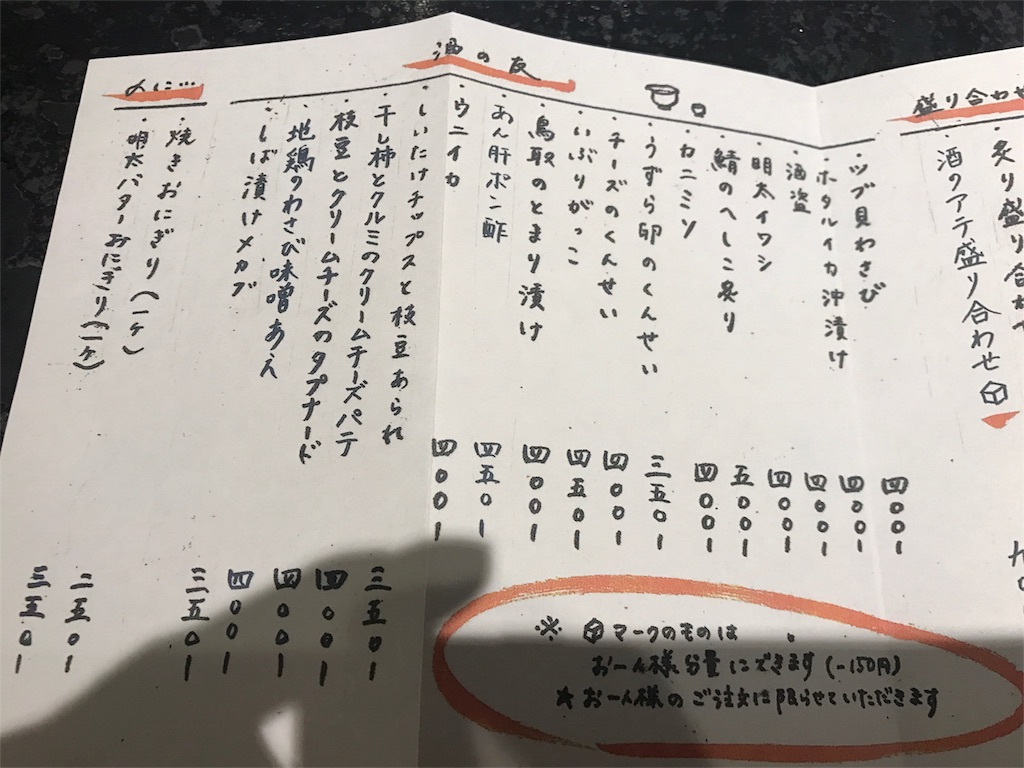 盛り合わせ
炙り盛り合わせ
酒のアテ盛り合わせ
酒の友
・ツブ貝わさび 四00ー
・ホタルイカ沖漬け 四00ー
・酒盗 四00ー
・明太イワシ 四00ー
・鯖のへしこ炙り 五00ー
・カニミソ 四00ー
・うずら卵のくんせい 三五0ー
・チーズのくんせい 四00ー
・いぶりがっこ 四五0ー
・鳥取のとまり漬け 四00ー
・あん肝ポン酢 四五0ー
・ウニイカ 四00ー
・しいたけチップスと枝豆あられ 三五0ー
・干し柿とクルミのクリームチーズパテ 四00ー
・枝豆とクリームチーズのタプナード 四00ー
・地鶏のわさび味噌あえ 四00ー
・しば漬けメカブ 三五0ー
〆に…
・焼きおにぎり(一ヶ) 二五0ー
・明太バターおにぎり(一ヶ) 三五0ー
※ マークのものは
お一人様分量にできます(-150円)
★お一人様のご注文に限らせていただきます